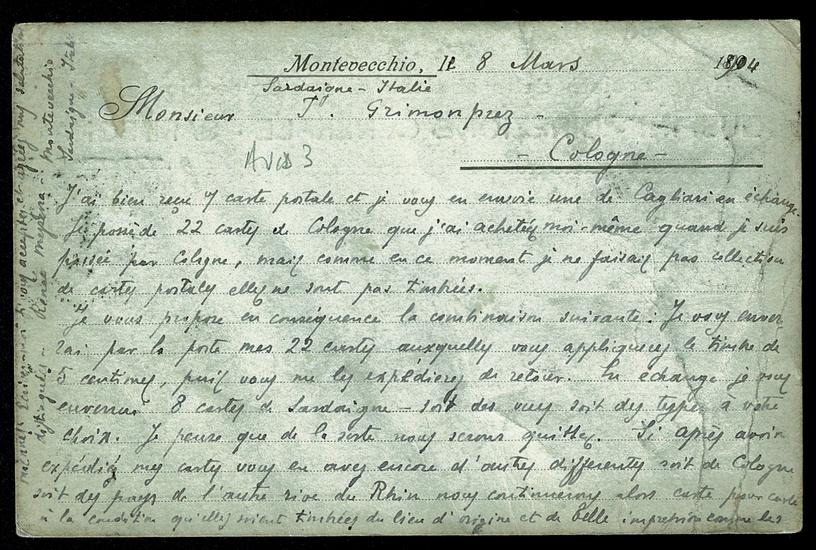 Montevecchio, le 8 Mars 1904
Sardaigne - Italie
Monsieur T. Grimonprez -
- Cologne -
J'ai bien reçu 7 carte postale et je vous en envoie une de Cagliari en échange.
Je possède 22 cartes de Cologne que j'ai achetées moi-même quand je suis
passée par Cologne, mais comme en ce moment je ne faisais pas collection
de cartes postales elles ne sont pas timbrées.
Je vous propose en conséquence la combinaison suivante: Je vous enver
rai par la poste mes 22 cartes auxquelles vous appliquerez le timbre de
5 centimes, puis vous me les expédierez de retour. En échange je vous
enverrai 8 cartes de Sardaigne - soit des vues soit des types à votre
choix. Je pense que de la sorte nous serons quittes. Si après avoir
expédié mes cartes vous en avez encore d'autres differentes soit de Cologne
soit des pays de l'autre rive du Rhin nous continuerons alors carte pour carte
à la condition qu'elles soient timbrées du lieu d'origine et de belle impression comme les
et agréez mes salutations
distinguées - Montevecchio
Sardaigne - Italie